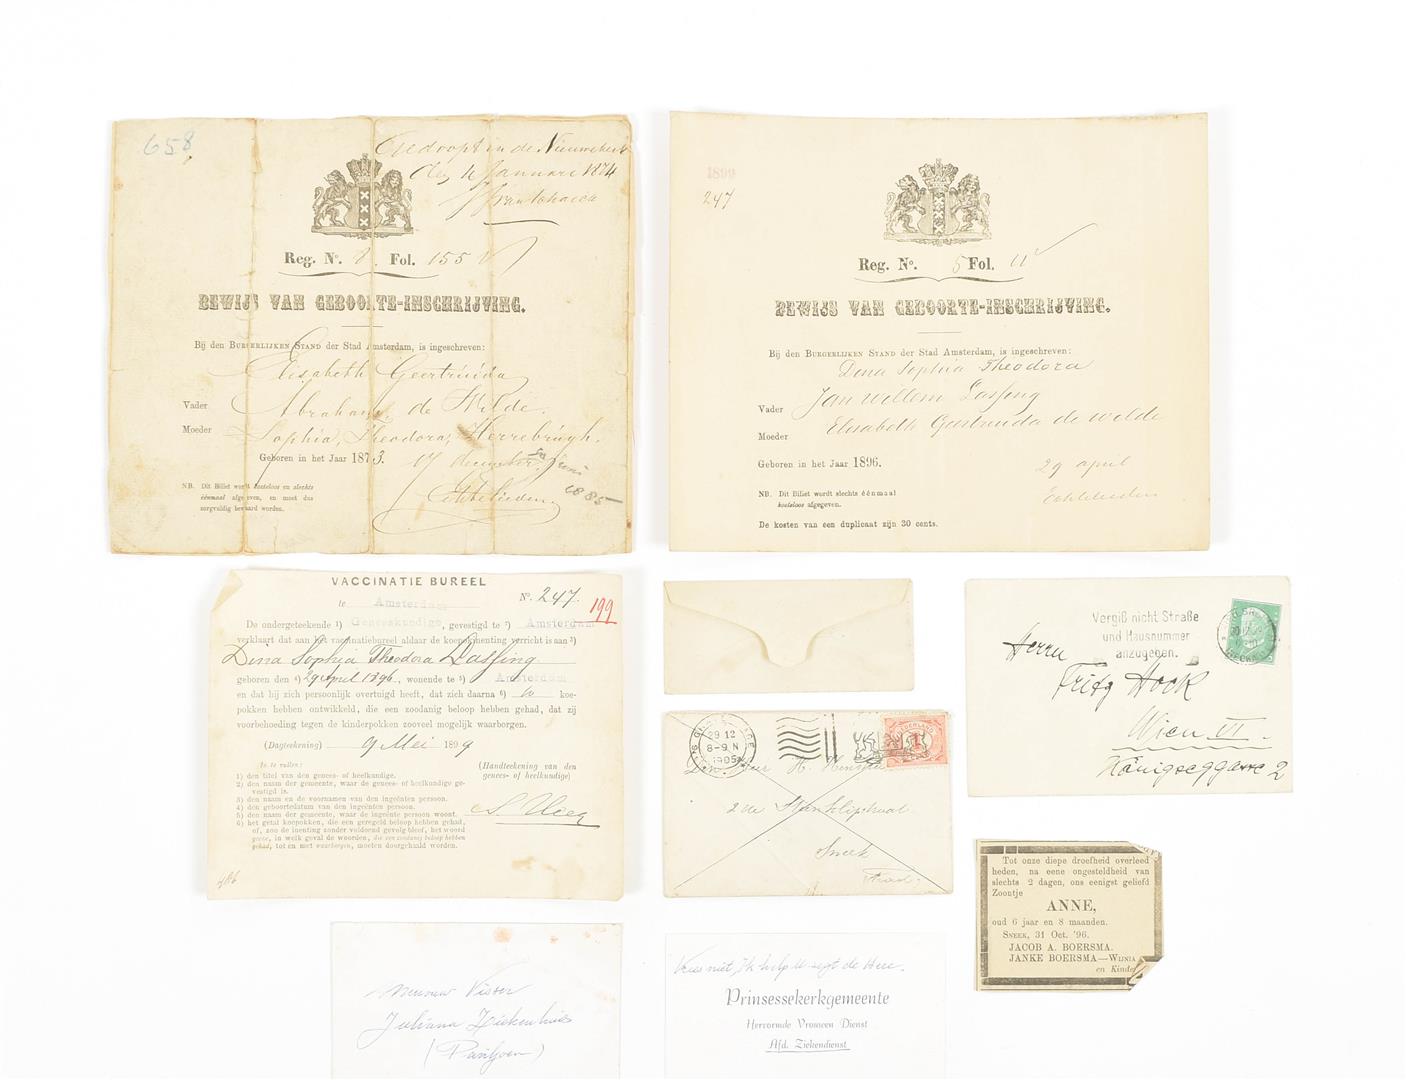 658
Gedoopt in de Nieuwekerk
den 4 Januari 1874
Reg. No. 8. Fol. 155
BEWIJS VAN GEBOORTE-INSCHRIJVING.
Bij den Burgerlijken Stand der Stad Amsterdam, is ingeschreven:
Elisabeth Geertruida
Vader Abraham de Wilde.
Moeder Sophia, Theodora, Herrebrugh.
Geboren in het Jaar 1873. 17 december
1885
NB. Dit Billet wordt kosteloos en slechts
éénmaal afgegeven, en moet dus
zorgvuldig bewaard worden.
1899
247
Reg. No. 5 Fol. 11
BEWIJS VAN GEBOORTE-INSCHRIJVING.
Bij den Burgerlijken Stand der Stad Amsterdam, is ingeschreven:
Dina Sophia Theodora
Vader Jan Willem Dassing
Moeder Elisabeth Geertruida de Wilde
Geboren in het Jaar 1896. 29 april
NB. Dit Billet wordt slechts éénmaal
kosteloos afgegeven.
De kosten van een duplicaat zijn 30 cents.
VACCINATIE BUREEL
te Amsterdam No. 247. 199
De ondergeteekende 1) Geneeskundige, gevestigd te 2) Amsterdam
verklaart dat aan het vaccinatiebureel aldaar de koepokinenting verricht is aan 3)
Dina Sophia Theodora Dassing
geboren den 4) 29 April 1896, wonende te 5) Amsterdam
en dat hij zich persoonlijk overtuigd heeft, dat zich daarna 6) 10 koe-
pokken hebben ontwikkeld, die een zoodanig beloop hebben gehad, dat zij
voorbehoeding tegen de kinderpokken zooveel mogelijk waarborgen.
(Dagteekening) 9 Mei 1899
In te vullen: (Handteekening van den
genees- of heelkundige)
1) den titel van den genees- of heelkundige.
2) den naam der gemeente, waar de genees- of heelkundige ge-
vestigd is.
3) den naam en de voornamen van den ingeënten persoon.
4) den geboortedatum van den ingeënten persoon.
5) den naam der gemeente, waar de ingeënte persoon woont.
6) het getal koepokken, die een geregeld beloop hebben gehad,
of, zoo de inenting zonder voldoend gevolg bleef, het woord
geene, in welk geval de woorden, die een zoodanig beloop hebben
gehad, tot en met waarborgen, moeten doorgehaald worden.
Vergiß nicht Straße
und Hausnummer
anzugeben.
Herrn
Fritz Hock
Wien VI.
Königseggasse 2
29 12
8-9 N
1905
NEDERLAND
1
2de
Sneek
Tot onze diepe droefheid overleed
heden, na eene ongesteldheid van
slechts 2 dagen, ons eenigst geliefd
Zoontje
ANNE,
oud 6 jaar en 8 maanden.
Sneek, 31 Oct. '96.
JACOB A. BOERSMA.
JANKE BOERSMA—Wijnia
en Kinde
Mevrouw Visser
Juliana Ziekenhuis
(Paviljoen)
Vrees niet, Ik help U zegt de Here.
Prinsessekerkgemeente
Hervormde Vrouwen Dienst
Afd. Ziekendienst